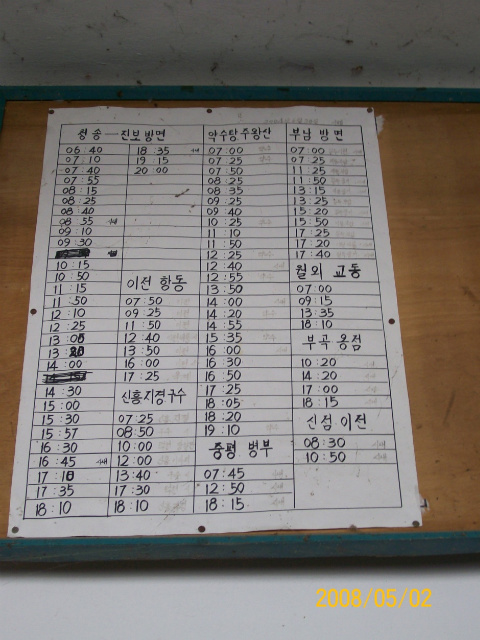 청송-진보방면
06:40 18:35
07:10 19:15
07:40 20:00
07:55
08:15
08:25
08:40
08:55
09:10
09:30
10:15
10:50
11:15
11:50
12:10
12:25
13:05
13:20
14:00
14:30
15:00
15:30
15:57
16:30
16:45
17:10
17:35
18:10
이전 항동
07:50
09:25
11:50
12:40
13:50
16:00
17:25
신흥지경구수
07:25
08:50
10:00
12:00
13:40
17:30
18:10
약수탕주왕산
07:00
07:25
07:50
08:25
08:35
09:25
09:40
10:25
11:10
11:50
12:25
12:40
12:55
13:50
14:00
14:20
14:55
15:35
16:00
16:30
16:50
17:25
18:05
18:20
19:10
증평 병부
07:45
12:50
18:15
부남 방면
07:00
07:25
11:25
11:50
13:15
13:25
15:20
15:50
17:25
17:20
17:40
월외 교동
07:00
09:15
13:35
18:10
부곡 용점
10:20
14:20
17:00
18:15
신점 이전
08:30
10:50
2008/05/02